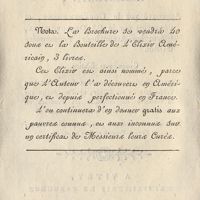 Nota. La Brochure se vendra 40
sous et la Bouteille de l'Elixir Amé-
ricain, 3 livres.
Cet Elixir est ainsi nommé, parce
que l'Auteur l'a découvert en Améri-
que, et depuis perfectionné en France.
L'on continuera d'en donner gratis aux
pauvres connus, et aux inconnus sur
un certificat de Messieurs leurs Curés.